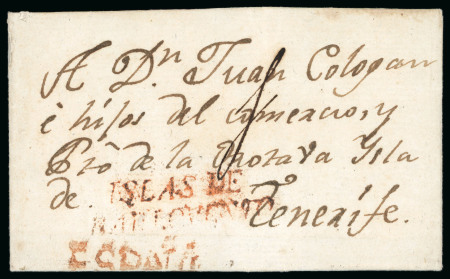 A Dn Juan Cologan
é hijos del comercio, y
Pto de la Orotava Ysla
de Tenerife.
ISLAS DE
BARLOVENTO
ESPAÑA